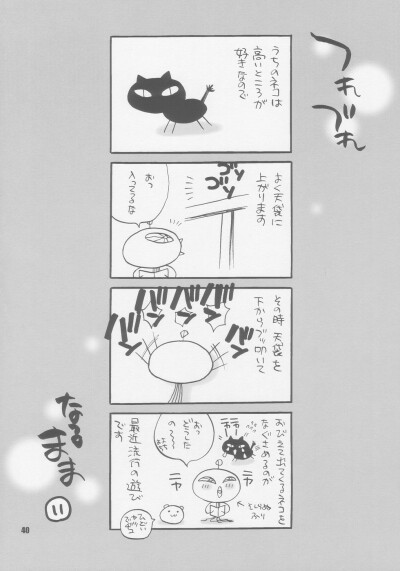 つれ
づれ
うちのネコは
高いところが
好きなので
よく天袋に
上がります
ゴソ
ゴソ
おっ
入ってるな
その時 天袋を
下からブッ叩いて
バン
バン
バン
バン
バン
おびえて出てくるネコを
なぐさめるのが
最近流行の遊び
です
おっ
どうした
の〜〜
ニヤ
ニヤ
なる
まま
11
40